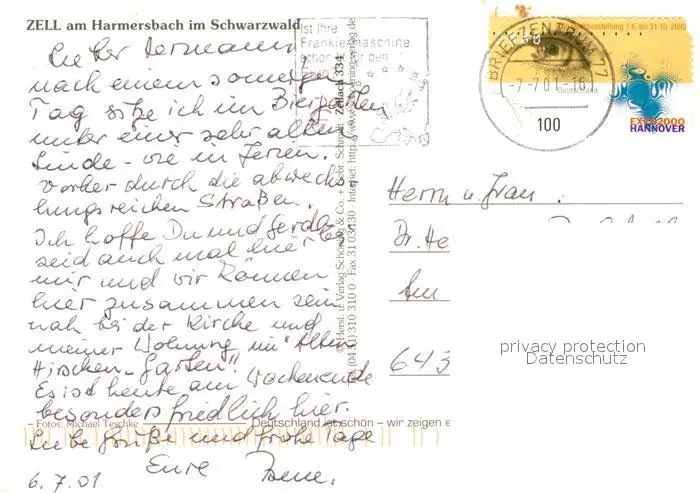 ZELL am Harmersbach im Schwarzwald
Lieber Hermann
nach einem sonnigen
Tag sitze ich im Biergarten
unter einer sehr alten
Linde – wie in Ferien.
Vorher durch die abwechs
lungsreichen Straßen.
Ich hoffe Du und Gerda
seid auch mal hier bei
mir und wir können
hier zusammen sein
nah bei der Kirche und
meiner Wohnung im "Alten
Hirschen-Garten"!
Es ist heute am Wochenende
besonders friedlich hier.
Liebe Grüße und frohe Tage
Eure
6.7.01
Fotos: Michael Teschke
Deutschland ist schön – wir zeigen e
ist Ihre
Frankiermaschine
schon
den
Zellach 334
Herst. u. Verlag Schöning & Co. + Gebr. Schmidt
310 310 0 · Fax 31 03 130 · Internet: http://www.schoening-verlag.de
BRIEFZENTRUM 77
-7.-7.01-16
100
Weltausstellung 1.6. bis 31.10. 2000
Deutschland
EXPO2000
HANNOVER
Herrn u. Frau
Dr. He
Am
643
privacy protection
Datenschutz